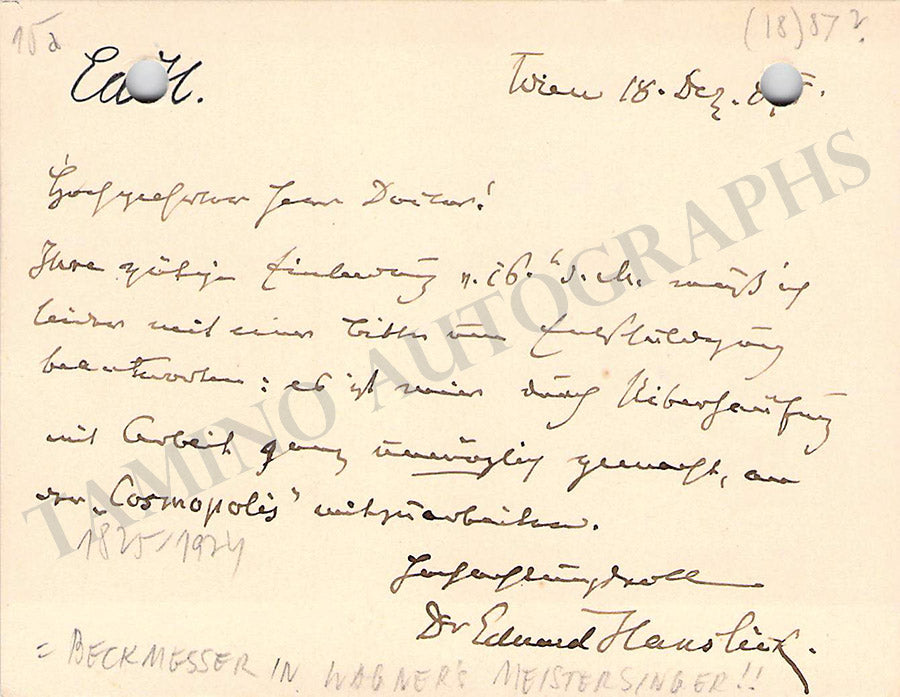 15a
(18)87?
Ed H.
Wien 18. Dez.
Hochgeehrter Herr Doctor!
Ihre gütige Einladung v. 16. d. M. muß ich
leider mit einer Bitte um Entschuldigung
beantworten: es ist mir durch Überhäufung
mit Arbeit ganz unmöglich gemacht, an
der „Cosmopolis" mitzuarbeiten.
1825/1924
Hochachtungsvoll
Dr Eduard Hanslick.
= BECKMESSER IN WAGNER'S MEISTERSINGER!!
TAMINO AUTOGRAPHS